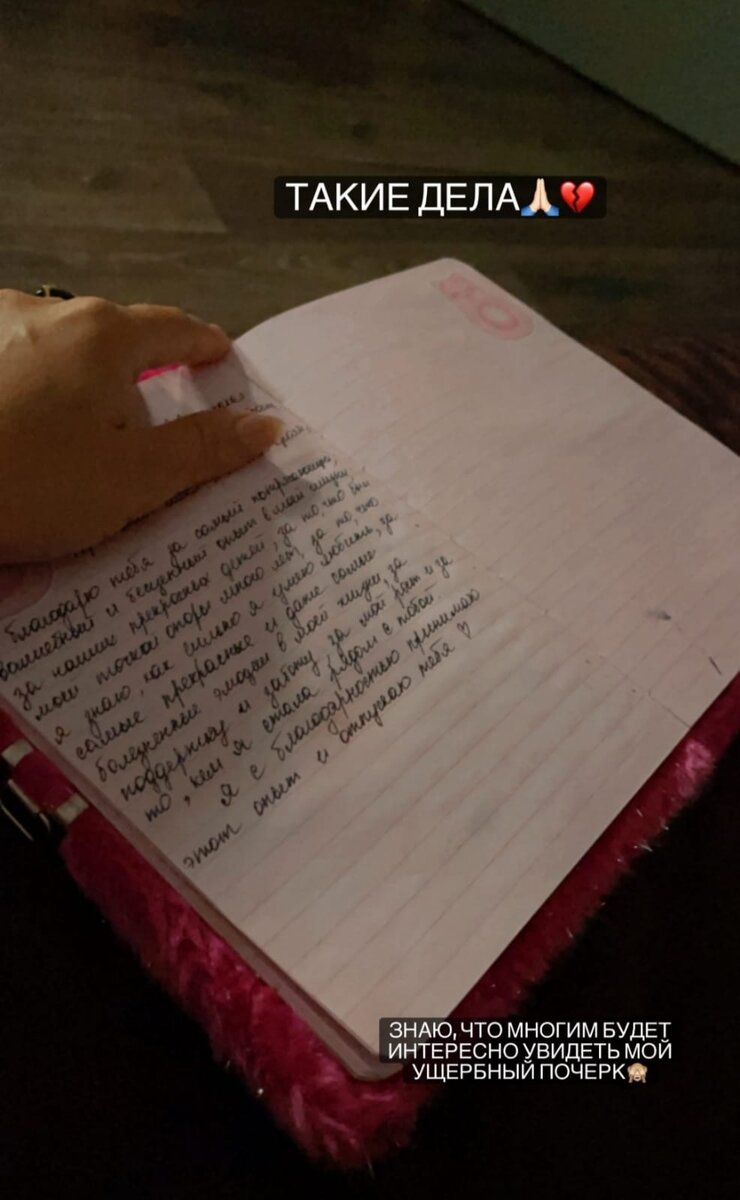 ТАКИЕ ДЕЛА🙏🏻💔
благодарю тебя за самый потрясающий,
волшебный и бесценный опыт в моей жизни
за наших прекрасных детей, за то, что был
моей точкой опоры много лет, за то, что
я знаю, как сильно я умею любить, за
самые прекрасные и даже самые
болезненные эмоции в моей жизни, за
поддержку и заботу, за мой рост и за
то, кем я стала рядом с тобой.
Я с благодарностью принимаю
этот опыт и отпускаю тебя ♡
ЗНАЮ, ЧТО МНОГИМ БУДЕТ
ИНТЕРЕСНО УВИДЕТЬ МОЙ
УЩЕРБНЫЙ ПОЧЕРК🙈